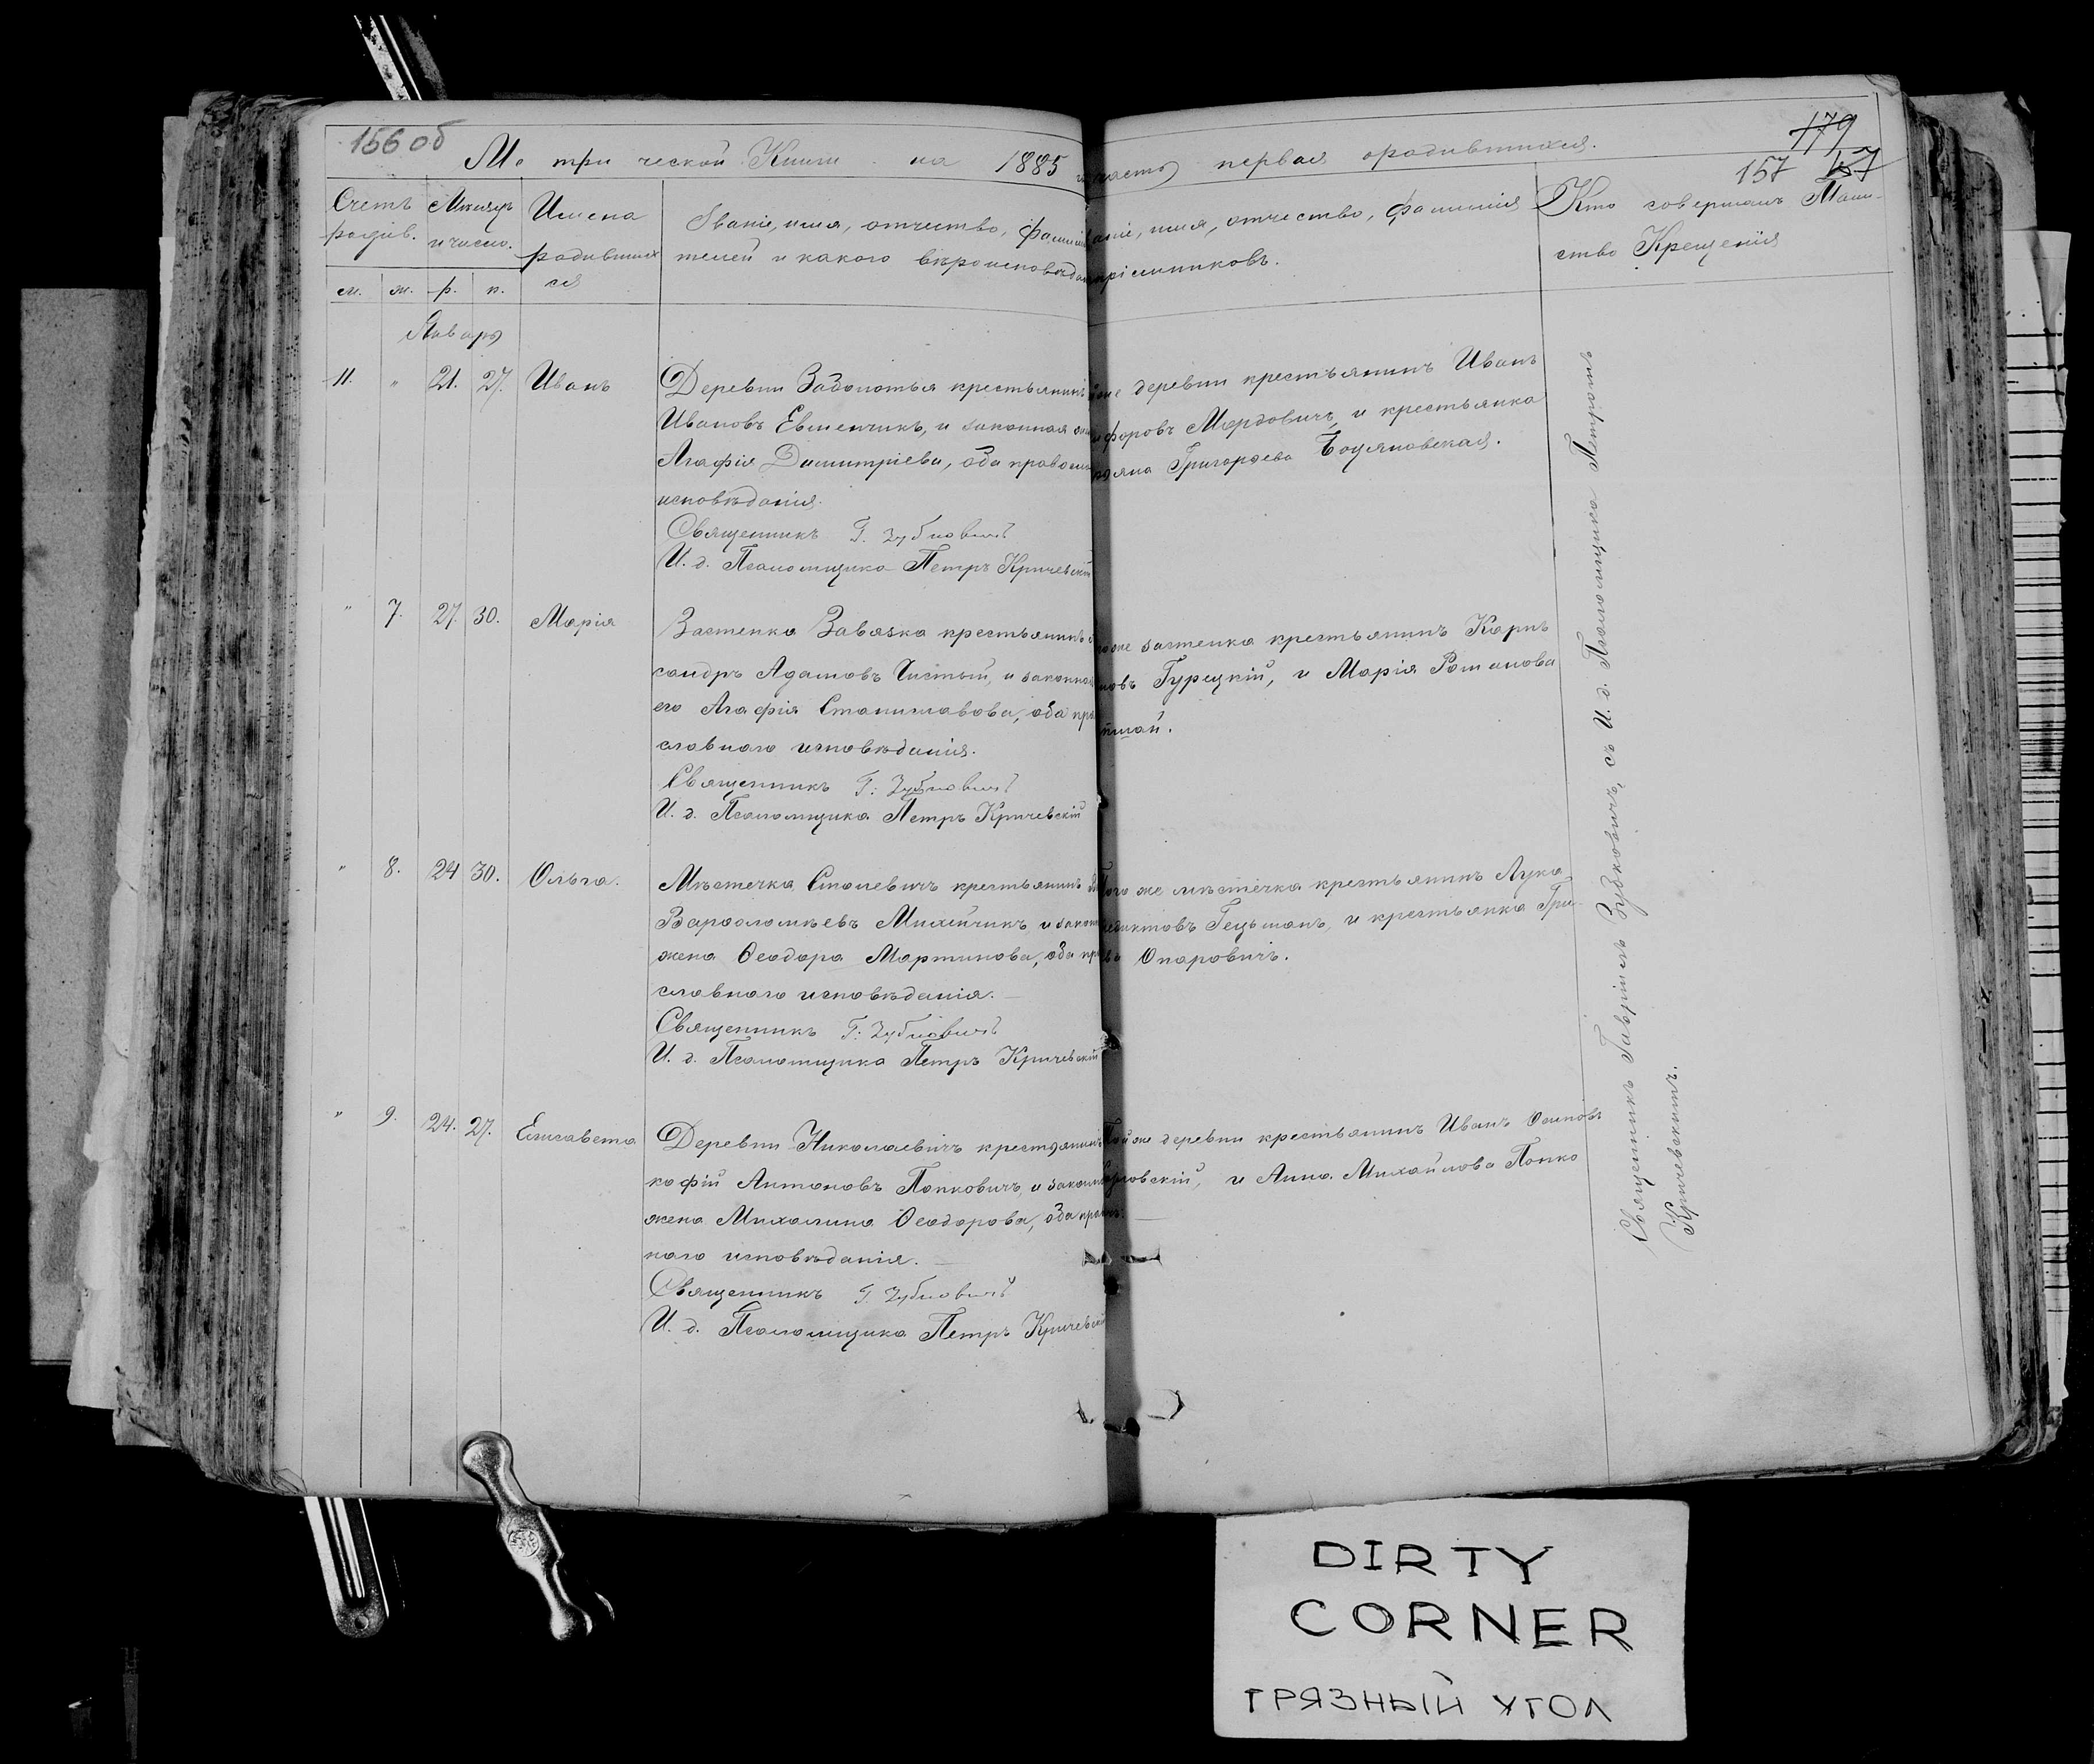 156 об
Метрической Книги на 1885
Счетъ родив.
Мѣсяцъ и число.
Имена родившихся
Званіе, имя, отчество, фамилія
телей и какого вѣроисповѣдан
м. ж. р. к.
Январь
11. " 21. 27. Иванъ
Деревни Заболотья крестьянинъ
Ивановъ Евменчикъ, и законная
Агафія Димитріева, оба правосл
исповѣданія.
Священникъ Г. Зубковичъ
И. д. Псаломщика Петръ Кричевскій
" 7. 27. 30. Марія
Застенка Завязка крестьянинъ
сандръ Адамовъ Чистый, и законная
его Агафія Станиславова, оба пра
славнаго исповѣданія.
Священникъ Г: Зубковичъ
И. д. Псаломщика Петръ Кричевскій
" 8. 24 30. Ольга.
Мѣстечка Столевичъ крестьянинъ
Варѳоломѣевъ Михейчикъ и закон
жена Ѳеодора Мартинова, оба пра
славнаго исповѣданія.
Священникъ Г: Зубковичъ
И. д. Псаломщика Петръ Кричевскій
" 9. 24. 27. Елисавета
Деревни Николаевичъ крестьянинъ
кофій Антоновъ Попковичъ, и законн
жена Михалина Ѳеодорова, оба прав
наго исповѣданія.
Священникъ Г. Зубковичъ
И. д. Псаломщика Петръ Кричевскій
179
157 157
часть первая о родившихся.
аніе, имя, отчество, фамилія
пріемниковъ.
Кто совершалъ Таин-
ство Крещенія
же деревни крестьянинъ Иванъ
форовъ Мордовичъ, и крестьянка
яна Григорьева Боуяновская.
же застенка крестьянинъ Карпъ
новъ Гурецкій, и Марія Романова
Того же мѣстечка крестьянинъ Лука
едиктовъ Гецьманъ, и крестьянка Гри-
Опаровичъ.
Той же деревни крестьянинъ Иванъ Осиповъ
рловскій, и Анна Михайлова Попко
Священникъ Гавріилъ Зубковичъ, съ И. д. Псаломщика Петромъ
Кричевскимъ.
DIRTY
CORNER
ГРЯЗНЫЙ УГОЛ